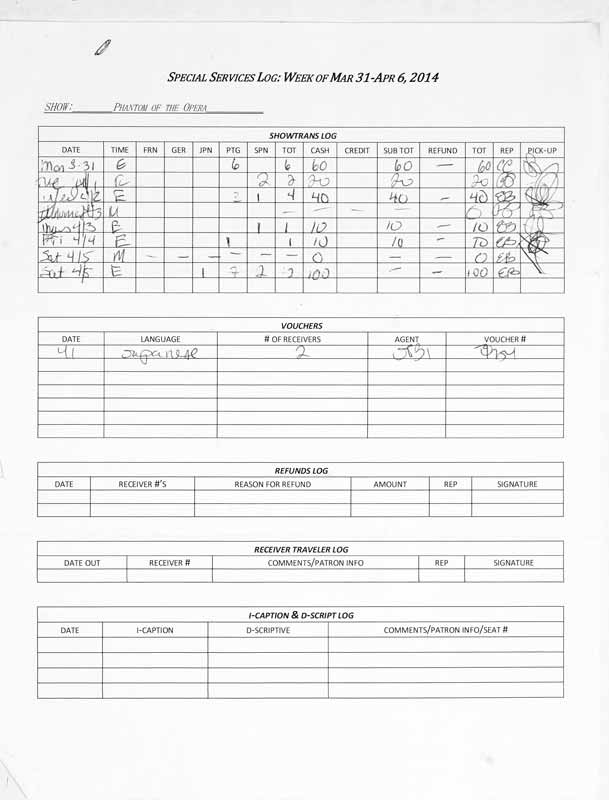 SPECIAL SERVICES LOG: WEEK OF MAR 31-APR 6, 2014
SHOW: PHANTOM OF THE OPERA
SHOWTRANS LOG
DATE TIME FRN GER JPN PTG SPN TOT CASH CREDIT SUB TOT REFUND TOT REP PICK-UP
Mon 3-31 E 6 6 60 60 — 60
2 2 20 20 20
4/2 E 1 4 40 40 - 40 EB
M — — — 0
4/3 E 1 1 10 10 - 10 EB
Fri 4/4 E 1 1 10 10 - 10 EB
Sat 4/5 M — — — — — — 0 — — 0 EB
Sat 4/5 E 1 7 2 100 — — 100 EB
VOUCHERS
DATE LANGUAGE # OF RECEIVERS AGENT VOUCHER #
Japanese 2
REFUNDS LOG
DATE RECEIVER #'S REASON FOR REFUND AMOUNT REP SIGNATURE
RECEIVER TRAVELER LOG
DATE OUT RECEIVER # COMMENTS/PATRON INFO REP SIGNATURE
I-CAPTION & D-SCRIPT LOG
DATE I-CAPTION D-SCRIPTIVE COMMENTS/PATRON INFO/SEAT #